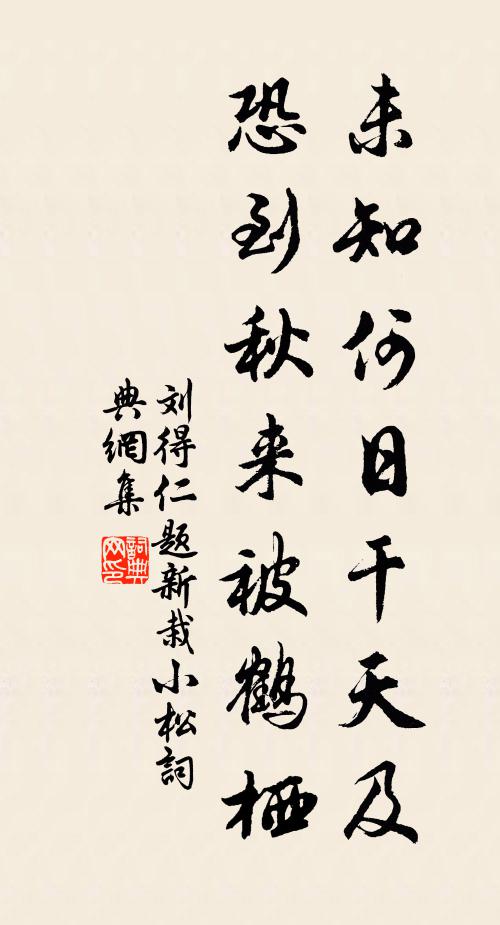 未知何日干天及
恐到秋来被鹤栖
刘得仁题新栽小松詞
典網集
詞典網印